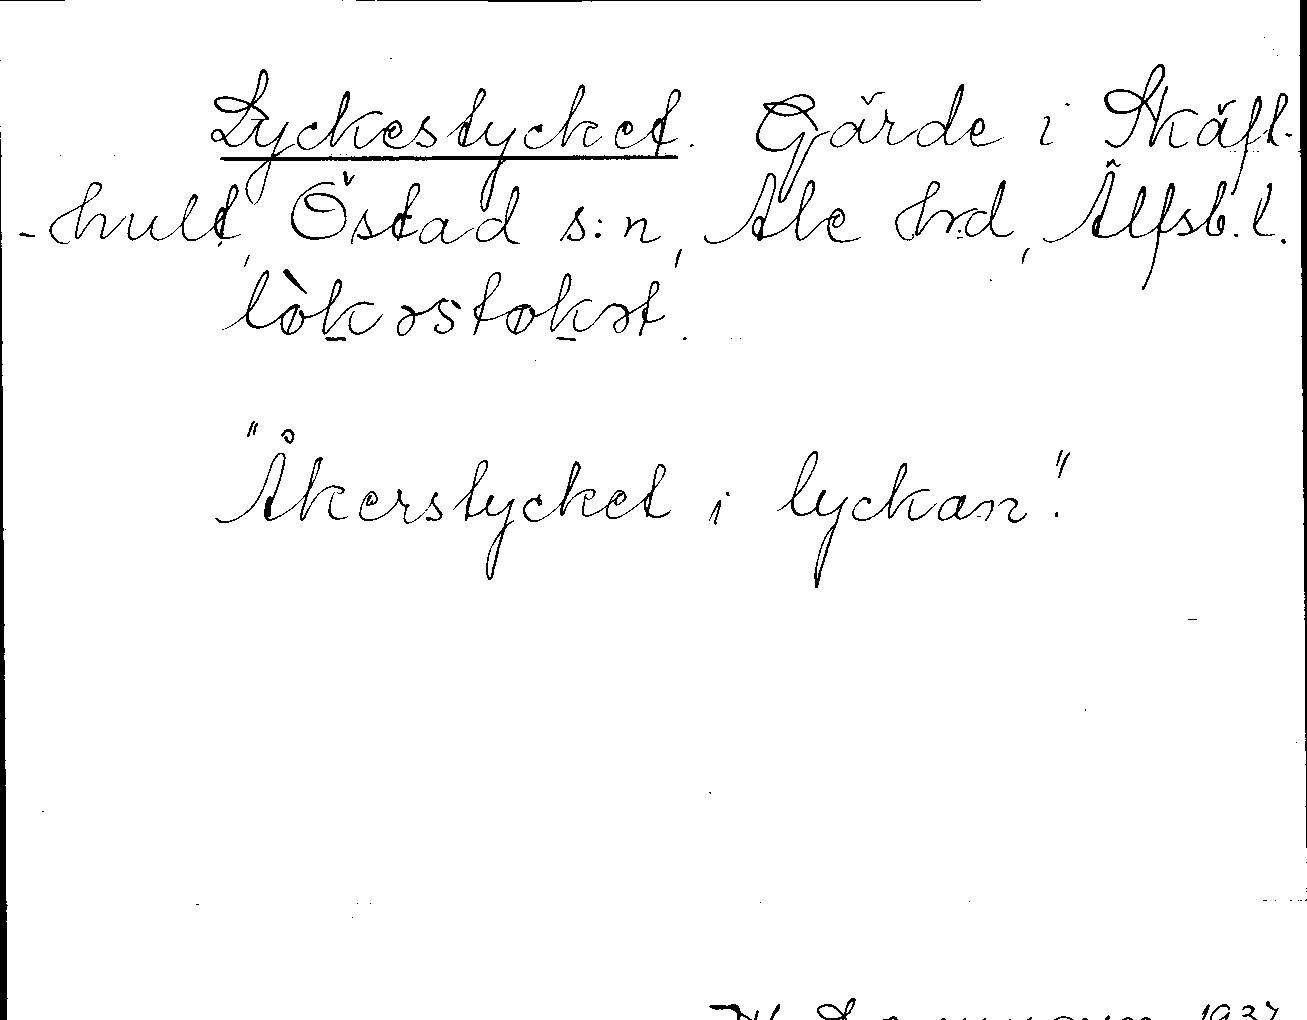 Lyckestycket. Gärde i Skäfl-
-hult, Östad s:n, Ale hrd, Älfsb. l.
lòkəstokət.
"Åkerstycket i lyckan".
1937